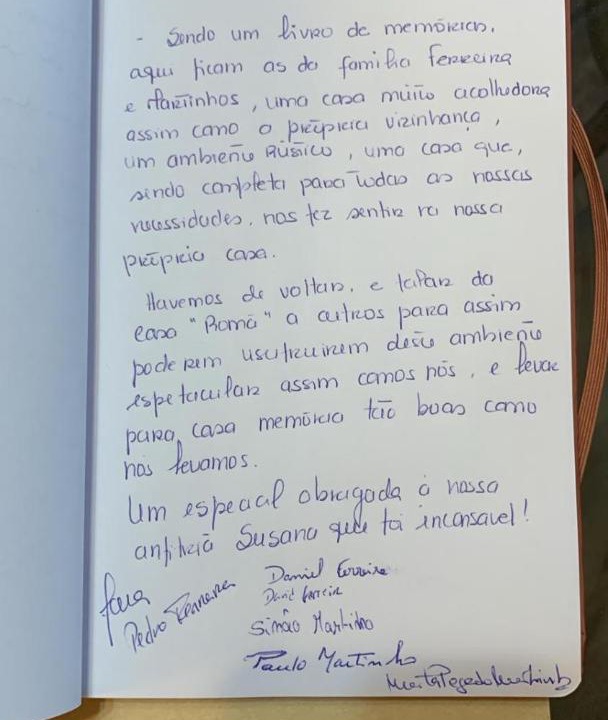 - Sendo um livro de memórias,
aqui ficam as da família Ferreira
e Martinhos, uma casa muito acolhedora
assim como o própria vizinhança,
um ambiente Rústico, uma casa que,
sendo completa para todas as nossas
necessidades, nos fez sentir na nossa
própria casa.
Havemos de voltar, e falar da
casa "Romã" a outros para assim
poderem usufruirem deste ambiente
espetacular assim comos nós, e levar
para casa memória tão boas como
nós levamos.
Um especial obrigada á nossa
anfitriã Susana que foi incansavel!
Pedro Ferreira
Daniel Ferreira
David Ferreira
Simão Martinho
Paulo Martinho